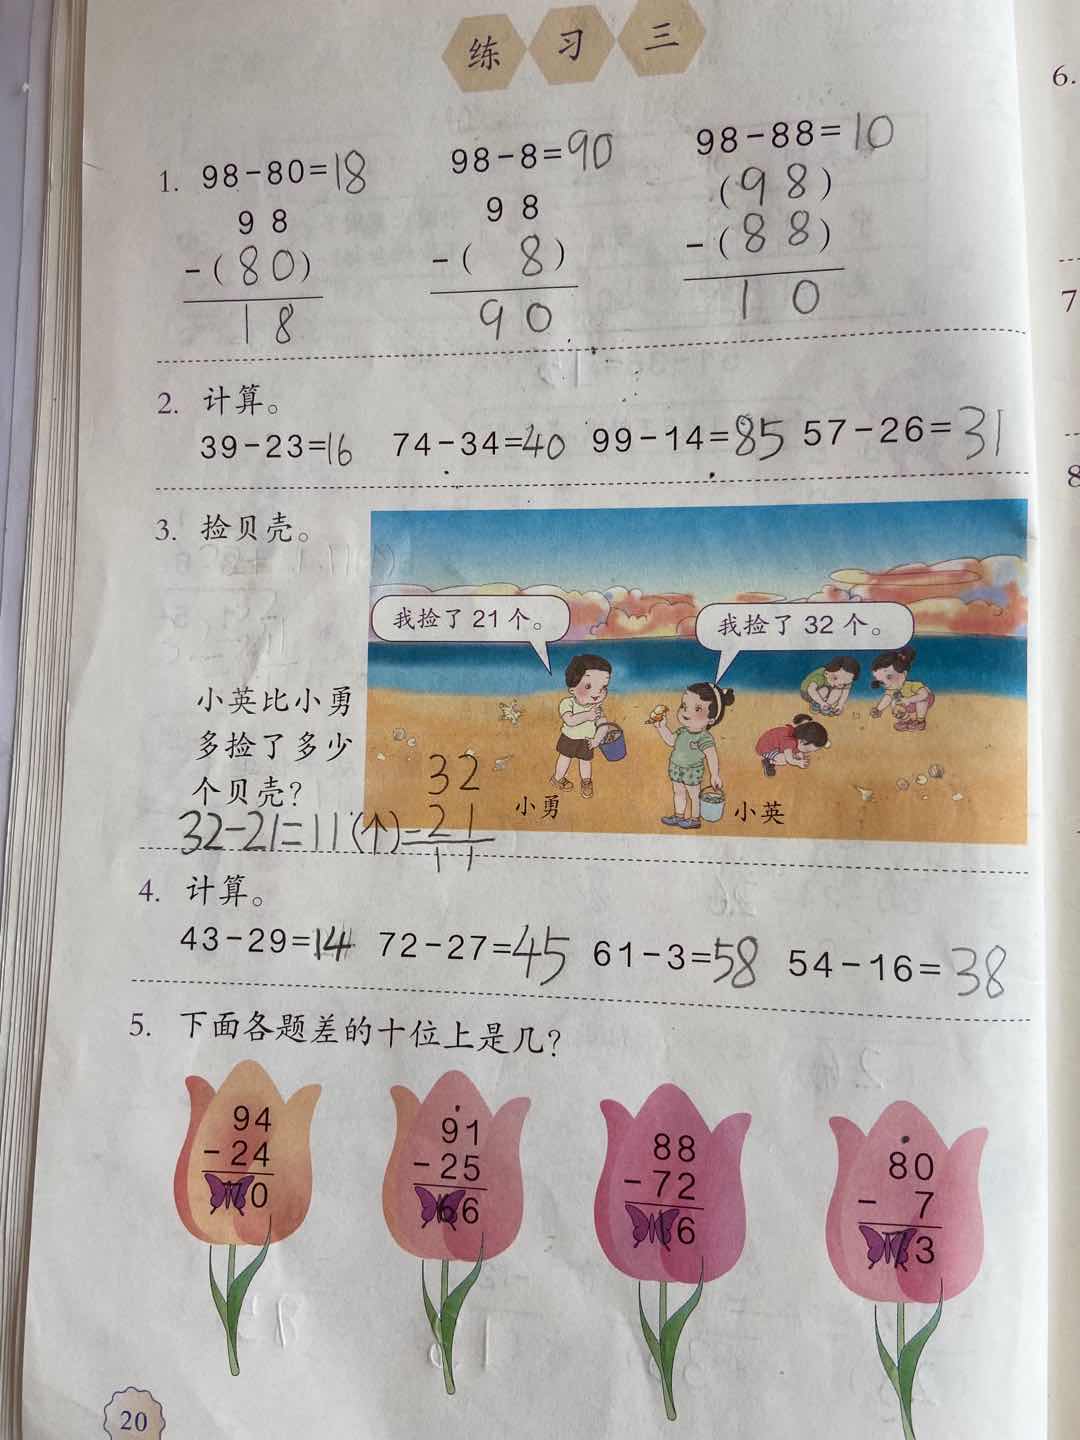 练习三
1. 98-80=18 98-8=90 98-88=10
9 8 9 8 (9 8)
-(80) -( 8) -(88)
18 90 10
2. 计算。
39-23=16 74-34=40 99-14=85 57-26=31
3. 捡贝壳。
我捡了21个。 我捡了32个。
小英比小勇
多捡了多少
个贝壳?
小勇 小英
32-21=11(个)
32
-21
11
4. 计算。
43-29=14 72-27=45 61-3=58 54-16=38
5. 下面各题差的十位上是几?
94 91 88 80
-24 -25 -72 - 7
70 66 16 73
20
6.
7
8